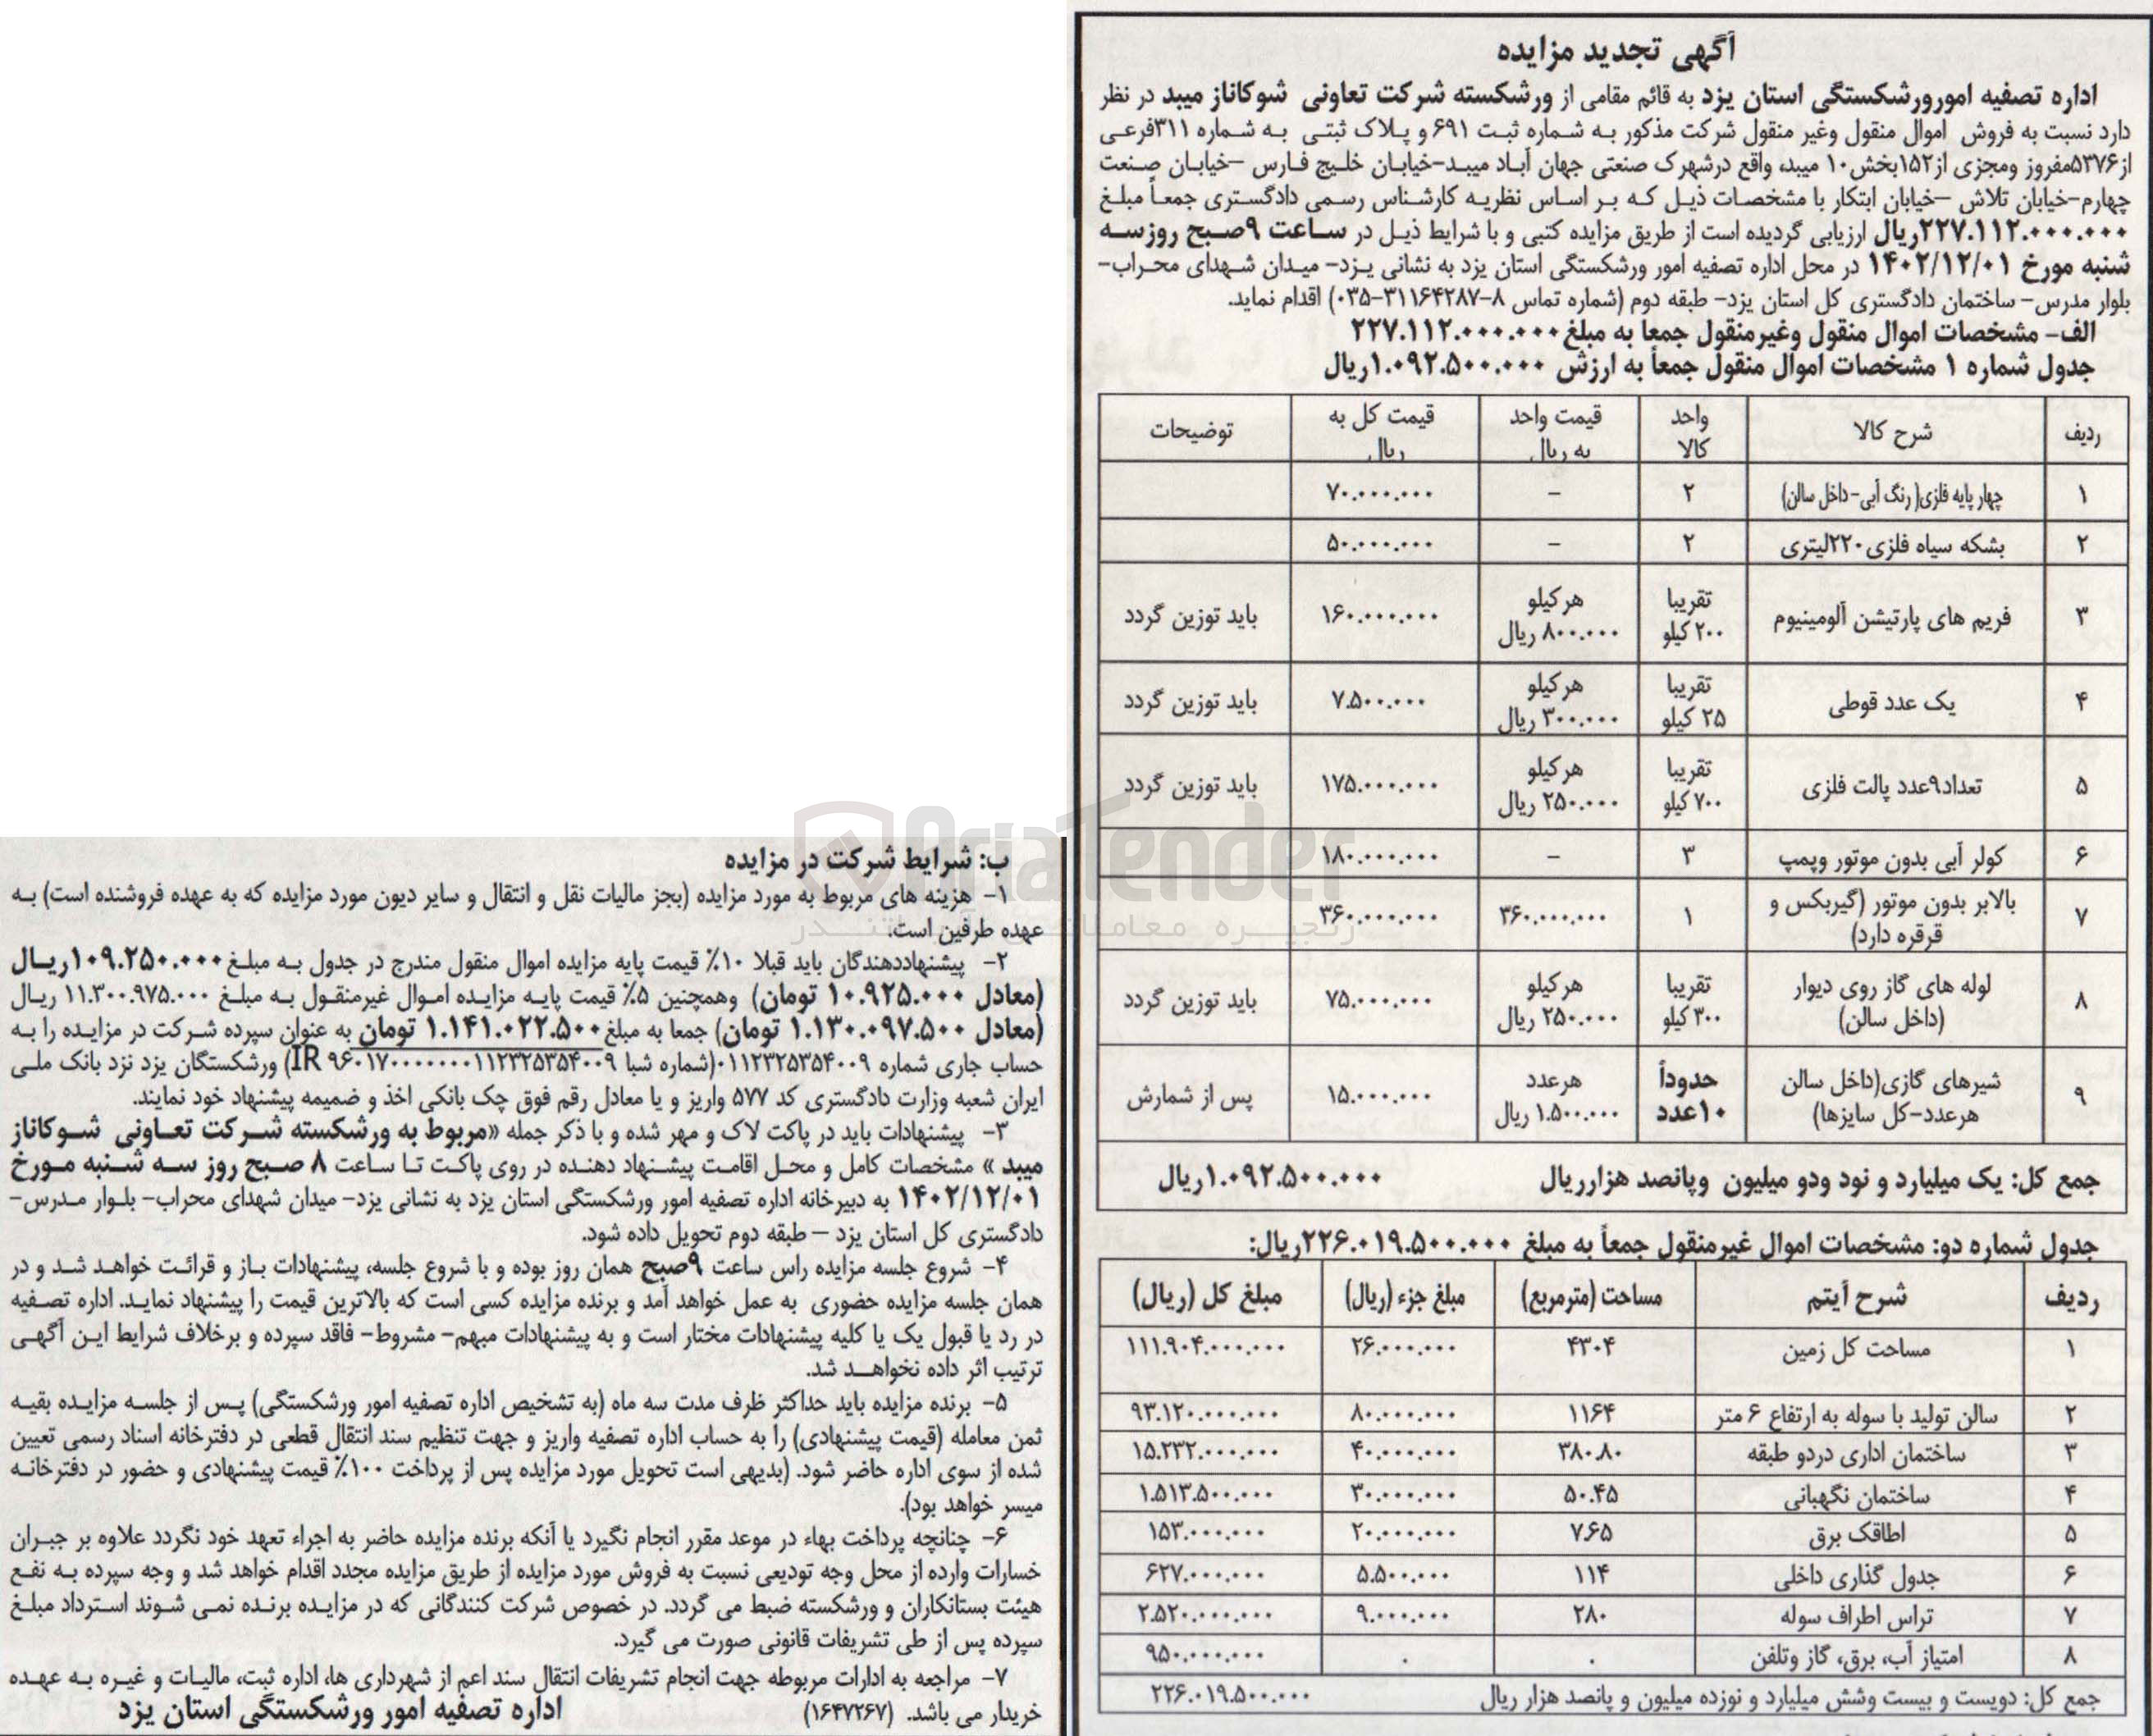 آگهی تجدید مزایده
اداره تصفیه امورورشکستگی استان یزد به قائم مقامی از ورشکسته شرکت تعاونی شوکاناز میبد در نظر
دارد نسبت به فروش اموال منقول وغیر منقول شرکت مذکور به شماره ثبت ۶۹۱ و پلاک ثبتی به شماره ۳۱۱فرعی
از۵۳۷۶مفروز ومجزی از۱۵۲بخش۱۰ میبد، واقع درشهرک صنعتی جهان آباد میبد-خیابان خلیج فارس –خیابان صنعت
چهارم-خیابان تلاش –خیابان ابتکار با مشخصات ذیل که بر اساس نظریه کارشناس رسمی دادگستری جمعاً مبلغ
۲۲۷.۱۱۲.۰۰۰.۰۰۰ریال ارزیابی گردیده است از طریق مزایده کتبی و با شرایط ذیل در ساعت ۹صبح روزسه
شنبه مورخ ۱۴۰۲/۱۲/۰۱ در محل اداره تصفیه امور ورشکستگی استان یزد به نشانی یزد- میدان شهدای محراب-
بلوار مدرس- ساختمان دادگستری کل استان یزد- طبقه دوم (شماره تماس ۸-۳۱۱۶۴۲۸۷-۰۳۵) اقدام نماید.
الف- مشخصات اموال منقول وغیرمنقول جمعا به مبلغ ۲۲۷.۱۱۲.۰۰۰.۰۰۰
جدول شماره ۱ مشخصات اموال منقول جمعاً به ارزش ۱.۰۹۲.۵۰۰.۰۰۰ریال
ردیف شرح کالا واحد کالا قیمت واحد به ریال قیمت کل به ریال توضیحات
۱ چهار پایه فلزی( رنگ آبی-داخل سالن) ۲ – ۷۰.۰۰۰.۰۰۰
۲ بشکه سیاه فلزی۲۲۰لیتری ۲ – ۵۰.۰۰۰.۰۰۰
۳ فریم های پارتیشن آلومینیوم تقریبا ۲۰۰ کیلو هر کیلو ۸۰۰.۰۰۰ ریال ۱۶۰.۰۰۰.۰۰۰ باید توزین گردد
۴ یک عدد قوطی تقریبا ۲۵ کیلو هر کیلو ۳۰۰.۰۰۰ ریال ۷.۵۰۰.۰۰۰ باید توزین گردد
۵ تعداد۹عدد پالت فلزی تقریبا ۷۰۰ کیلو هر کیلو ۲۵۰.۰۰۰ ریال ۱۷۵.۰۰۰.۰۰۰ باید توزین گردد
۶ کولر آبی بدون موتور وپمپ ۳ – ۱۸۰.۰۰۰.۰۰۰
۷ بالابر بدون موتور (گیربکس و قرقره دارد) ۱ ۳۶۰.۰۰۰.۰۰۰ ۳۶۰.۰۰۰.۰۰۰
۸ لوله های گاز روی دیوار (داخل سالن) تقریبا ۳۰۰ کیلو هر کیلو ۲۵۰.۰۰۰ ریال ۷۵.۰۰۰.۰۰۰ باید توزین گردد
۹ شیرهای گازی(داخل سالن هرعدد-کل سایزها) حدوداً ۱۰عدد هرعدد ۱.۵۰۰.۰۰۰ ریال ۱۵.۰۰۰.۰۰۰ پس از شمارش
جمع کل: یک میلیارد و نود ودو میلیون وپانصد هزارریال ۱.۰۹۲.۵۰۰.۰۰۰ریال
جدول شماره دو: مشخصات اموال غیرمنقول جمعاً به مبلغ ۲۲۶.۰۱۹.۵۰۰.۰۰۰ریال:
ردیف شرح آیتم مساحت (مترمربع) مبلغ جزء (ریال) مبلغ کل (ریال)
۱ مساحت کل زمین ۴۳۰۴ ۲۶.۰۰۰.۰۰۰ ۱۱۱.۹۰۴.۰۰۰.۰۰۰
۲ سالن تولید با سوله به ارتفاع ۶ متر ۱۱۶۴ ۸۰.۰۰۰.۰۰۰ ۹۳.۱۲۰.۰۰۰.۰۰۰
۳ ساختمان اداری دردو طبقه ۳۸۰.۸۰ ۴۰.۰۰۰.۰۰۰ ۱۵.۲۳۲.۰۰۰.۰۰۰
۴ ساختمان نگهبانی ۵۰.۴۵ ۳۰.۰۰۰.۰۰۰ ۱.۵۱۳.۵۰۰.۰۰۰
۵ اطاقک برق ۷.۶۵ ۲۰.۰۰۰.۰۰۰ ۱۵۳.۰۰۰.۰۰۰
۶ جدول گذاری داخلی ۱۱۴ ۵.۵۰۰.۰۰۰ ۶۲۷.۰۰۰.۰۰۰
۷ تراس اطراف سوله ۲۸۰ ۹.۰۰۰.۰۰۰ ۲.۵۲۰.۰۰۰.۰۰۰
۸ امتیاز آب، برق، گاز وتلفن ۰ ۰ ۹۵۰.۰۰۰.۰۰۰
جمع کل: دویست و بیست وشش میلیارد و نوزده میلیون و پانصد هزار ریال ۲۲۶.۰۱۹.۵۰۰.۰۰۰
ب: شرایط شرکت در مزایده
۱- هزینه های مربوط به مورد مزایده (بجز مالیات نقل و انتقال و سایر دیون مورد مزایده که به عهده فروشنده است) به
عهده طرفین است.
۲- پیشنهاددهندگان باید قبلا ۱۰٪ قیمت پایه مزایده اموال منقول مندرج در جدول به مبلغ ۱۰۹.۲۵۰.۰۰۰ریال
(معادل ۱۰.۹۲۵.۰۰۰ تومان) وهمچنین ۵٪ قیمت پایه مزایده اموال غیرمنقول به مبلغ ۱۱.۳۰۰.۹۷۵.۰۰۰ ریال
(معادل ۱.۱۳۰.۰۹۷.۵۰۰ تومان) جمعا به مبلغ۱.۱۴۱.۰۲۲.۵۰۰ تومان به عنوان سپرده شرکت در مزایده را به
حساب جاری شماره ۰۱۱۲۳۲۵۳۵۴۰۰۹(شماره شبا IR ۹۶۰۱۷۰۰۰۰۰۰۰۰۱۱۲۳۲۵۳۵۴۰۰۹) ورشکستگان یزد نزد بانک ملی
ایران شعبه وزارت دادگستری کد ۵۷۷ واریز و یا معادل رقم فوق چک بانکی اخذ و ضمیمه پیشنهاد خود نمایند.
۳- پیشنهادات باید در پاکت لاک و مهر شده و با ذکر جمله «مربوط به ورشکسته شرکت تعاونی شوکاناز
میبد » مشخصات کامل و محل اقامت پیشنهاد دهنده در روی پاکت تا ساعت ۸ صبح روز سه شنبه مورخ
۱۴۰۲/۱۲/۰۱ به دبیرخانه اداره تصفیه امور ورشکستگی استان یزد به نشانی یزد- میدان شهدای محراب- بلوار مدرس-
دادگستری کل استان یزد – طبقه دوم تحویل داده شود.
۴- شروع جلسه مزایده راس ساعت ۹صبح همان روز بوده و با شروع جلسه، پیشنهادات باز و قرائت خواهد شد و در
همان جلسه مزایده حضوری به عمل خواهد آمد و برنده مزایده کسی است که بالاترین قیمت را پیشنهاد نماید. اداره تصفیه
در رد یا قبول یک یا کلیه پیشنهادات مختار است و به پیشنهادات مبهم- مشروط- فاقد سپرده و برخلاف شرایط این آگهی
ترتیب اثر داده نخواهد شد.
۵- برنده مزایده باید حداکثر ظرف مدت سه ماه (به تشخیص اداره تصفیه امور ورشکستگی) پس از جلسه مزایده بقیه
ثمن معامله (قیمت پیشنهادی) را به حساب اداره تصفیه واریز و جهت تنظیم سند انتقال قطعی در دفترخانه اسناد رسمی تعیین
شده از سوی اداره حاضر شود. (بدیهی است تحویل مورد مزایده پس از پرداخت ۱۰۰٪ قیمت پیشنهادی و حضور در دفترخانه
میسر خواهد بود).
۶- چنانچه پرداخت بهاء در موعد مقرر انجام نگیرد یا آنکه برنده مزایده حاضر به اجراء تعهد خود نگردد علاوه بر جبران
خسارات وارده از محل وجه تودیعی نسبت به فروش مورد مزایده از طریق مزایده مجدد اقدام خواهد شد و وجه سپرده به نفع
هیئت بستانکاران و ورشکسته ضبط می گردد. در خصوص شرکت کنندگانی که در مزایده برنده نمی شوند استرداد مبلغ
سپرده پس از طی تشریفات قانونی صورت می گیرد.
۷- مراجعه به ادارات مربوطه جهت انجام تشریفات انتقال سند اعم از شهرداری ها، اداره ثبت، مالیات و غیره به عهده
خریدار می باشد. (۱۶۴۷۲۶۷) اداره تصفیه امور ورشکستگی استان یزد
AriaTender